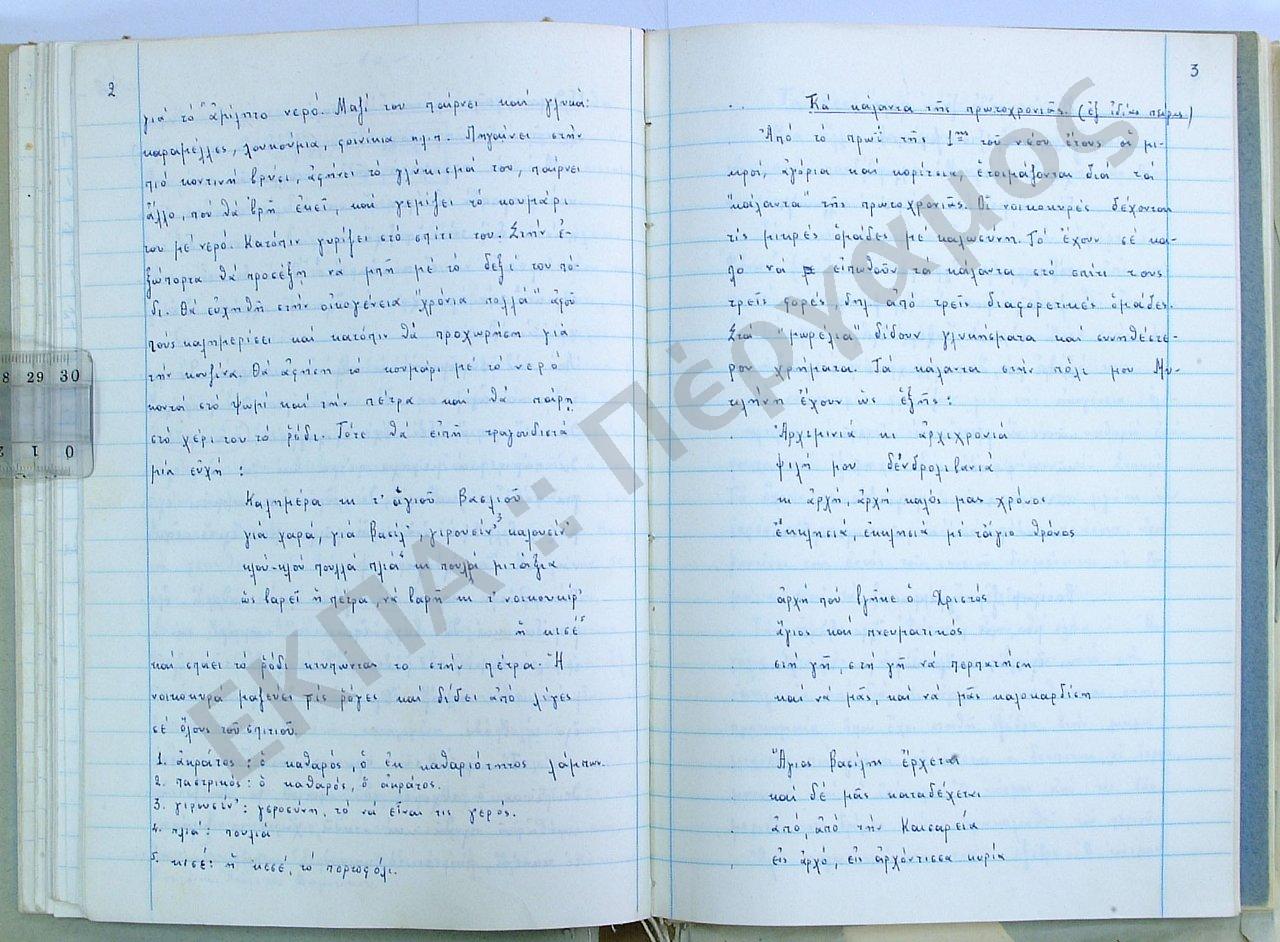 2
γιά τό "ἀμίλητο νερό. Μαζί του παίρνει καί γλυκά:
καραμέλλες, λουκούμια, φοινίκια κ.λ.π. Πηγαίνει στήν
πιό κοντινή βρύσι, ἀφήνει το γλύκισμά του, παίρνει
ἄλλο, πού θά βρῆ ἐκεῖ, καί γεμίζει τό κουμάρι
του μέ νερό. Κατόπιν γυρίζει στό σπίτι του. Στήν ἐ-
ξώπορτα θά προσέξη νά μπῆ μέ τό δεξί του πό-
δι. Θά εὐχηθῆ στήν οἰκογένεια "χρόνια πολλά" ἀφοῦ
τούς καλημερίσει καί κατόπιν θά προχωρήση γιά
τήν κουζίνα. Θά ἀφήση τό κουμάρι μέ τό νερό
κοντά στό ψωμί καί τήν πέτρα καί θά πάρη
στό χέρι του τό ῥόδι. Τότε θά εἰπῆ τραγουδιστά
μία εὐχή:
Καλημέρα κι τ' ἁγιοῦ Βασλιοῦ
γιά χαρά, γιά βασίλ', γιρουσύν'3 καλουσύν'
κλού-κλού πουλλά πλιά4 κι πουλλά μιτάξια
ὡς βαρεῖ ἡ πέτρα, νά βαρῆ κι τ' νοικουκύρ'
ἡ κισέ5
καί σπάει τό ῥόδι κτυπώντας το στήν πέτρα. Ἡ
νοικοκυρά μαζεύει τίς ῥόγες καί δίδει ἀπό λίγες
σέ ὅλους τοῦ σπιτιοῦ.
1. ἀκράτος: ὁ καθαρός, ὁ ἐκ καθαριότητος λάμπων.
2. παστρικός: ὁ καθαρός, ὁ ἀκράτος.
3. γιρωσύν': γεροσύνη, τό νά εἶναι τις γερός.
4. πλιά: πουλιά
5. κισέ: ἡ κεσέ, τό πορτοφόλι.
3
Τά κάλαντα τῆς πρωτοχρονιᾶς. (ἐξ ἰδίας πείρας)
Ἀπό τό πρωΐ τῆς 1ης τοῦ νέου ἔτους οἱ μι-
κροί, ἀγόρια καί κορίτσια, ἑτοιμάζονται διά τά
"κάλαντα" τῆς πρωτοχρονιᾶς. Οἱ νοικοκυρές δέχονται
τίς μικρές ὁμάδες μέ καλωσύνη. Τό ἔχουν σέ κα-
λό νά εἰπωθοῦν τά κάλαντα στό σπίτι τους
τρεῖς φορές, δηλ. ἀπό τρεῖς διαφορετικές ὁμάδες.
Στά "μωρέλια" δίδουν γλυκίσματα καί συνηθέστε-
ρον χρήματα. Τά κάλαντα στήν πόλι μου Μυ-
τιλήνη ἔχουν ὡς ἑξῆς:
Ἀρχιμινιά κι ἀρχιχρονιά
ψιλή μου δένδρολιβανιά
κι ἀρχή, ἀρχή καλός μας χρόνος
ἐκκλησιά, ἐκκλησιά μέ τἅγιο θρόνος
ἀρχή πού βγῆκε ὁ Χριστός
ἅγιος καί πνευματικός
στή γῆ, στή γῆ νά περπατήση
καί νά μᾶς, καί νά μᾶς καλοκαρδίση
Ἅγιος Βασίλης ἔρχεται
καί δέ μᾶς καταδέχεται
ἀπό, ἀπό τήν Καισαρεία
εἶς ἀρχό, εἶς ἀρχόντισσα κυρία
ΕΚΠΑ :: Πέργαμος
8 29 30
2 1 0